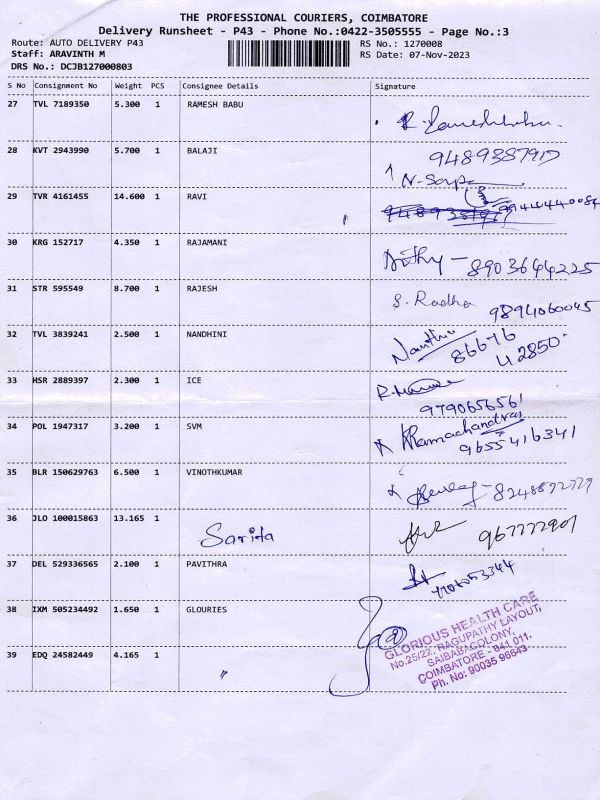 THE PROFESSIONAL COURIERS, COIMBATORE
Delivery Runsheet - P43 - Phone No.:0422-3505555 - Page No.:3
Route: AUTO DELIVERY P43 RS No.: 1270008
Staff: ARAVINTH M RS Date: 07-Nov-2023
DRS No.: DCJB127000803
S No Consignment No Weight PCS Consignee Details Signature
27 TVL 7189350 5.300 1 RAMESH BABU
28 KVT 2943990 5.700 1 BALAJI
29 TVR 4161455 14.600 1 RAVI
30 KRG 152717 4.350 1 RAJAMANI
8903644225
31 STR 595549 8.700 1 RAJESH S. Radha
9894060045
32 TVL 3839241 2.500 1 NANDHINI
86676
42850
33 HSR 2889397 2.300 1 ICE
9790656561
34 POL 1947317 3.200 1 SVM Ramachandran
9655416341
35 BLR 150629763 6.500 1 VINOTHKUMAR
36 JLO 100015863 13.165 1 Sarita
37 DEL 529336565 2.100 1 PAVITHRA
38 IXM 505234492 1.650 1 GLOURIES
39 EDQ 24582449 4.165 1 "
GLORIOUS HEALTH CARE
No.25/22, RAGUPATHY LAYOUT,
SAIBABACOLONY,
COIMBATORE - 641 011.
Ph. No: 90035 96643